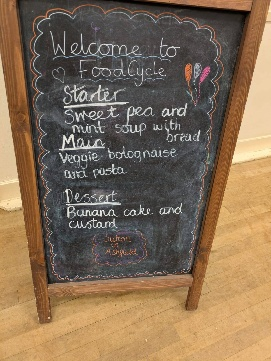 Welcome to
FoodCycle
Starter
Sweet pea and
mint soup with
bread
Main
Veggie bolognaise
and pasta
Dessert
Banana cake and
custard